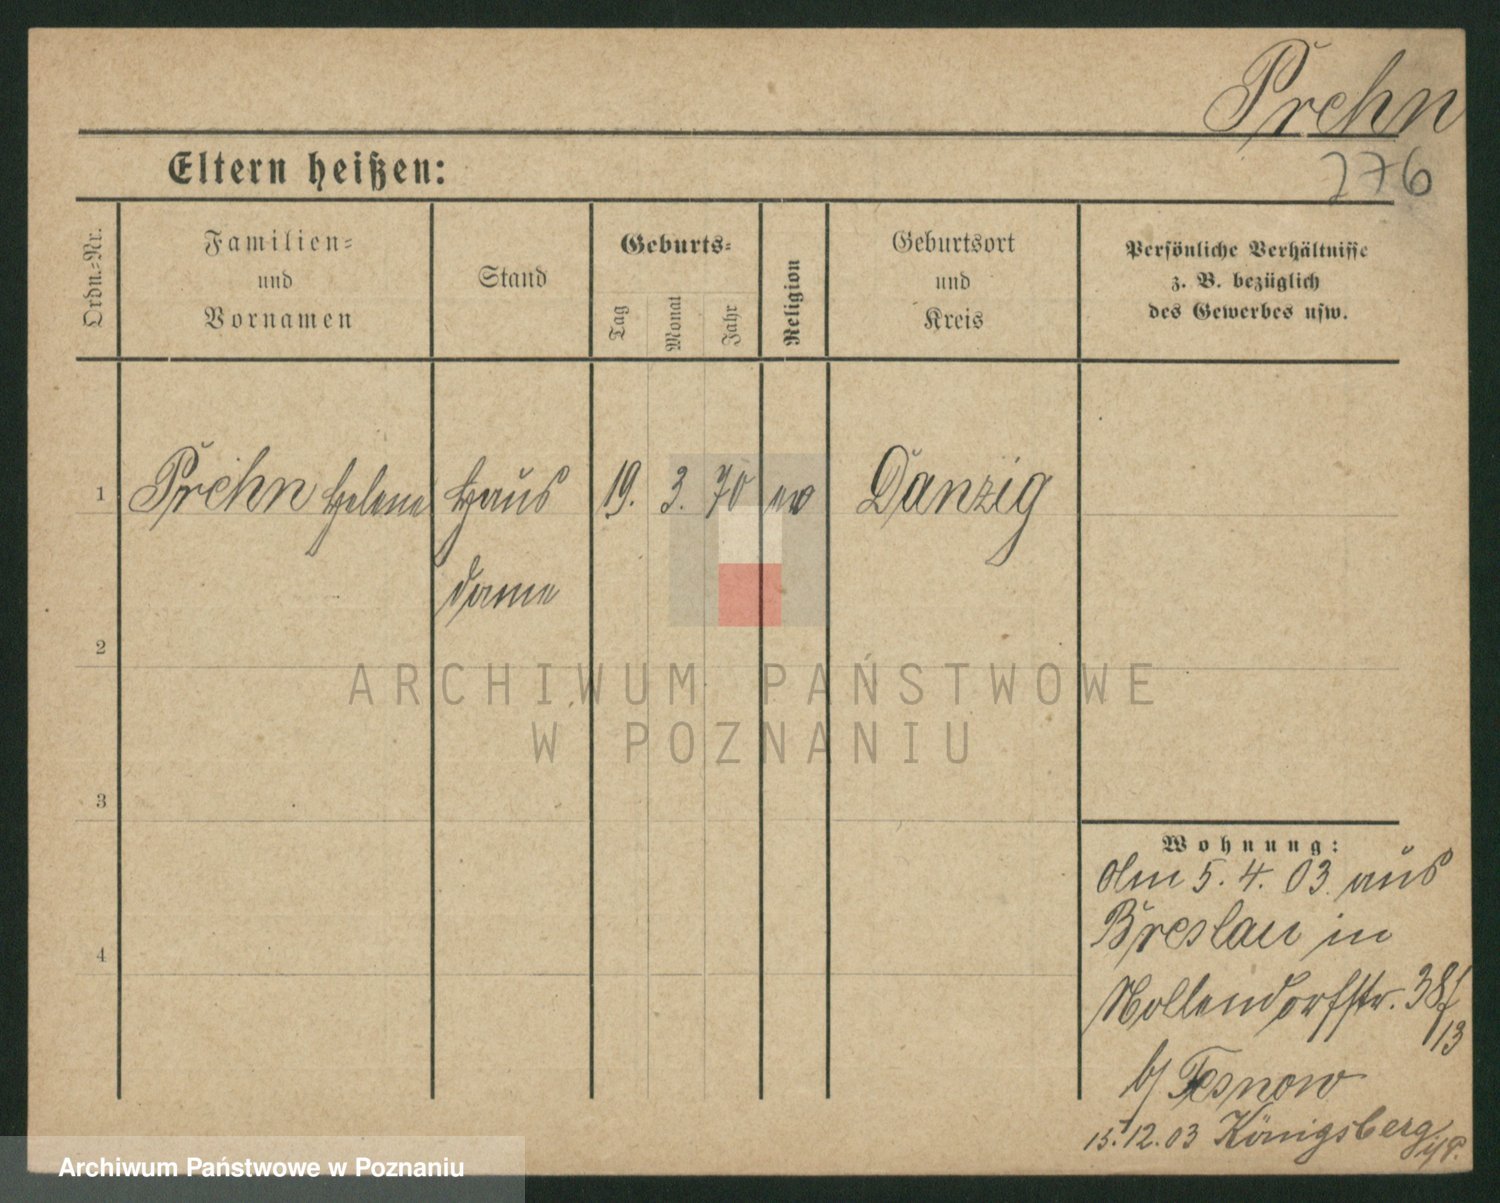 Prehn
276
Eltern heißen:
Ordn.-Nr.
Familien-
und
Vornamen
Stand
Geburts-
Tag
Monat
Jahr
Religion
Geburtsort
und
Kreis
Persönliche Verhältnisse
z. B. bezüglich
des Gewerbes usw.
1 Prehn Helene Haus 19. 3. 70 ev Danzig
dame
2
3
4
Wohnung:
Am 5. 4. 03 aus
Breslau in
Nollendorfstr. 38/
13
b/ Tesnow
15.12.03 Königsberg
i/P.
ARCHIWUM PAŃSTWOWE
W POZNANIU
Archiwum Państwowe w Poznaniu